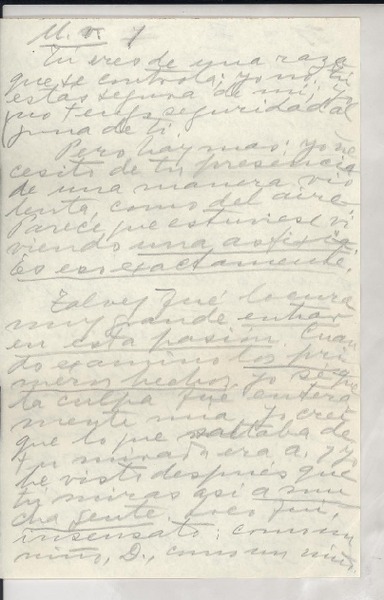 Tú eres de una raza
que se controla; yo no. Tú
estás segura de mí; yo
no tengo seguridad al
guna de ti.
Pero hay mas: yo ne
cesito de tu presencia
de una manera vio
lenta, como del aire.
Parece que estuviese vi
viendo una asfixia.
Es eso exactamente.
Talvez fué locura
muy grande entrar
en esta pasión. Cuan
do examino los pri
meros hechos, yo sé que
la culpa fue entera
mente mia. Yo creí
que lo que saltaba de
tu mirada era a. y yo
he visto después que
tú miras así a mu
cha gente. Loco fuí,
insensato: como un
niño, D., como un niño.